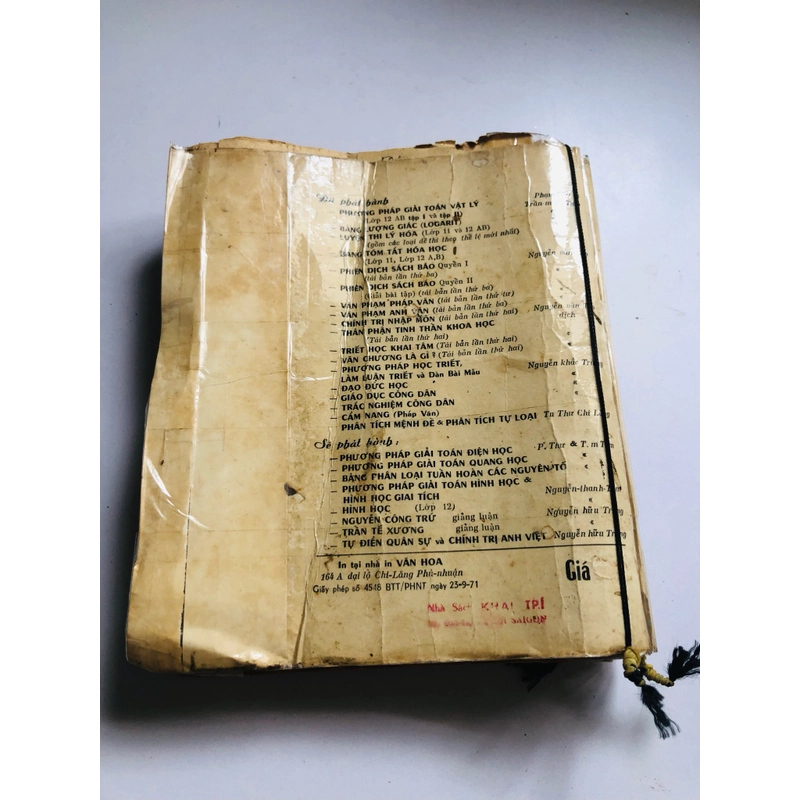 Đã phát hành
PHƯƠNG PHÁP GIẢI TOÁN VẬT LÝ
(Lớp 12 AB tập I và tập II) Trần
BẢNG LƯỢNG GIÁC (LOGARIT)
LUYỆN THI LÝ HÓA (Lớp 11 và 12 AB)
(gồm các loại đề thi theo thể lệ mới nhất)
BẢNG TÓM TẮT HÓA HỌC Nguyễn
(Lớp 11, Lớp 12 A,B)
PHIÊN DỊCH SÁCH BÁO Quyển I
(tái bản lần thứ ba)
PHIÊN DỊCH SÁCH BÁO Quyển II
(Giải bài tập) (tái bản lần thứ ba)
— VĂN PHẠM PHÁP VĂN (tái bản lần thứ tư)
— VĂN PHẠM ANH VĂN (tái bản lần thứ ba)
— CHÍNH TRỊ NHẬP MÔN (tái bản lần thứ hai) Nguyễn văn
— THÂN PHẬN TINH THẦN KHOA HỌC dịch
(Tái bản lần thứ hai)
— TRIẾT HỌC KHAI TÂM (Tái bản lần thứ hai)
— VĂN CHƯƠNG LÀ GÌ ? (Tái bản lần thứ hai)
— PHƯƠNG PHÁP HỌC TRIẾT,
LÀM LUẬN TRIẾT và Dàn Bài Mẫu Nguyễn khắc
— ĐẠO ĐỨC HỌC
— GIÁO DỤC CÔNG DÂN
— TRẮC NGHIỆM CÔNG DÂN
— CẨM NANG (Pháp Văn)
PHÂN TÍCH MỆNH ĐỀ & PHÂN TÍCH TỰ LOẠI Tu Thư Chi Lăng
Sẽ phát hành :
— PHƯƠNG PHÁP GIẢI TOÁN ĐIỆN HỌC P. Thư & T. m
— PHƯƠNG PHÁP GIẢI TOÁN QUANG HỌC
— BẢNG PHÂN LOẠI TUẦN HOÀN CÁC NGUYÊN TỐ
— PHƯƠNG PHÁP GIẢI TOÁN HÌNH HỌC &
HÌNH HỌC GIAI TÍCH Nguyễn-thanh
— HÌNH HỌC (Lớp 12)
— NGUYỄN CÔNG TRỨ giảng luận Nguyễn hữu Trọng
— TRẦN TẾ XƯƠNG giảng luận
— TỰ ĐIỂN QUÂN SỰ và CHÍNH TRỊ ANH VIỆT Nguyễn hữu Trọng
In tại nhà in VĂN HOA
164 A đại lộ Chi-Lăng Phú-nhuận
Giấy phép số 4548 BTT/PHNT ngày 23-9-71
Giá
Nhà Sách KHAI TRÍ
SAIGON